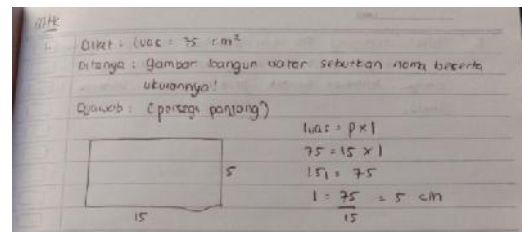 MTK
Diket : luas = 75 cm²
Ditanya : gambar bangun datar sebutkan nama beserta
ukurannya!
Dijawab : (persegi panjang)
luas = p x l
75 = 15 x l
15l = 75
l = 75 = 5 cm
15
5
15